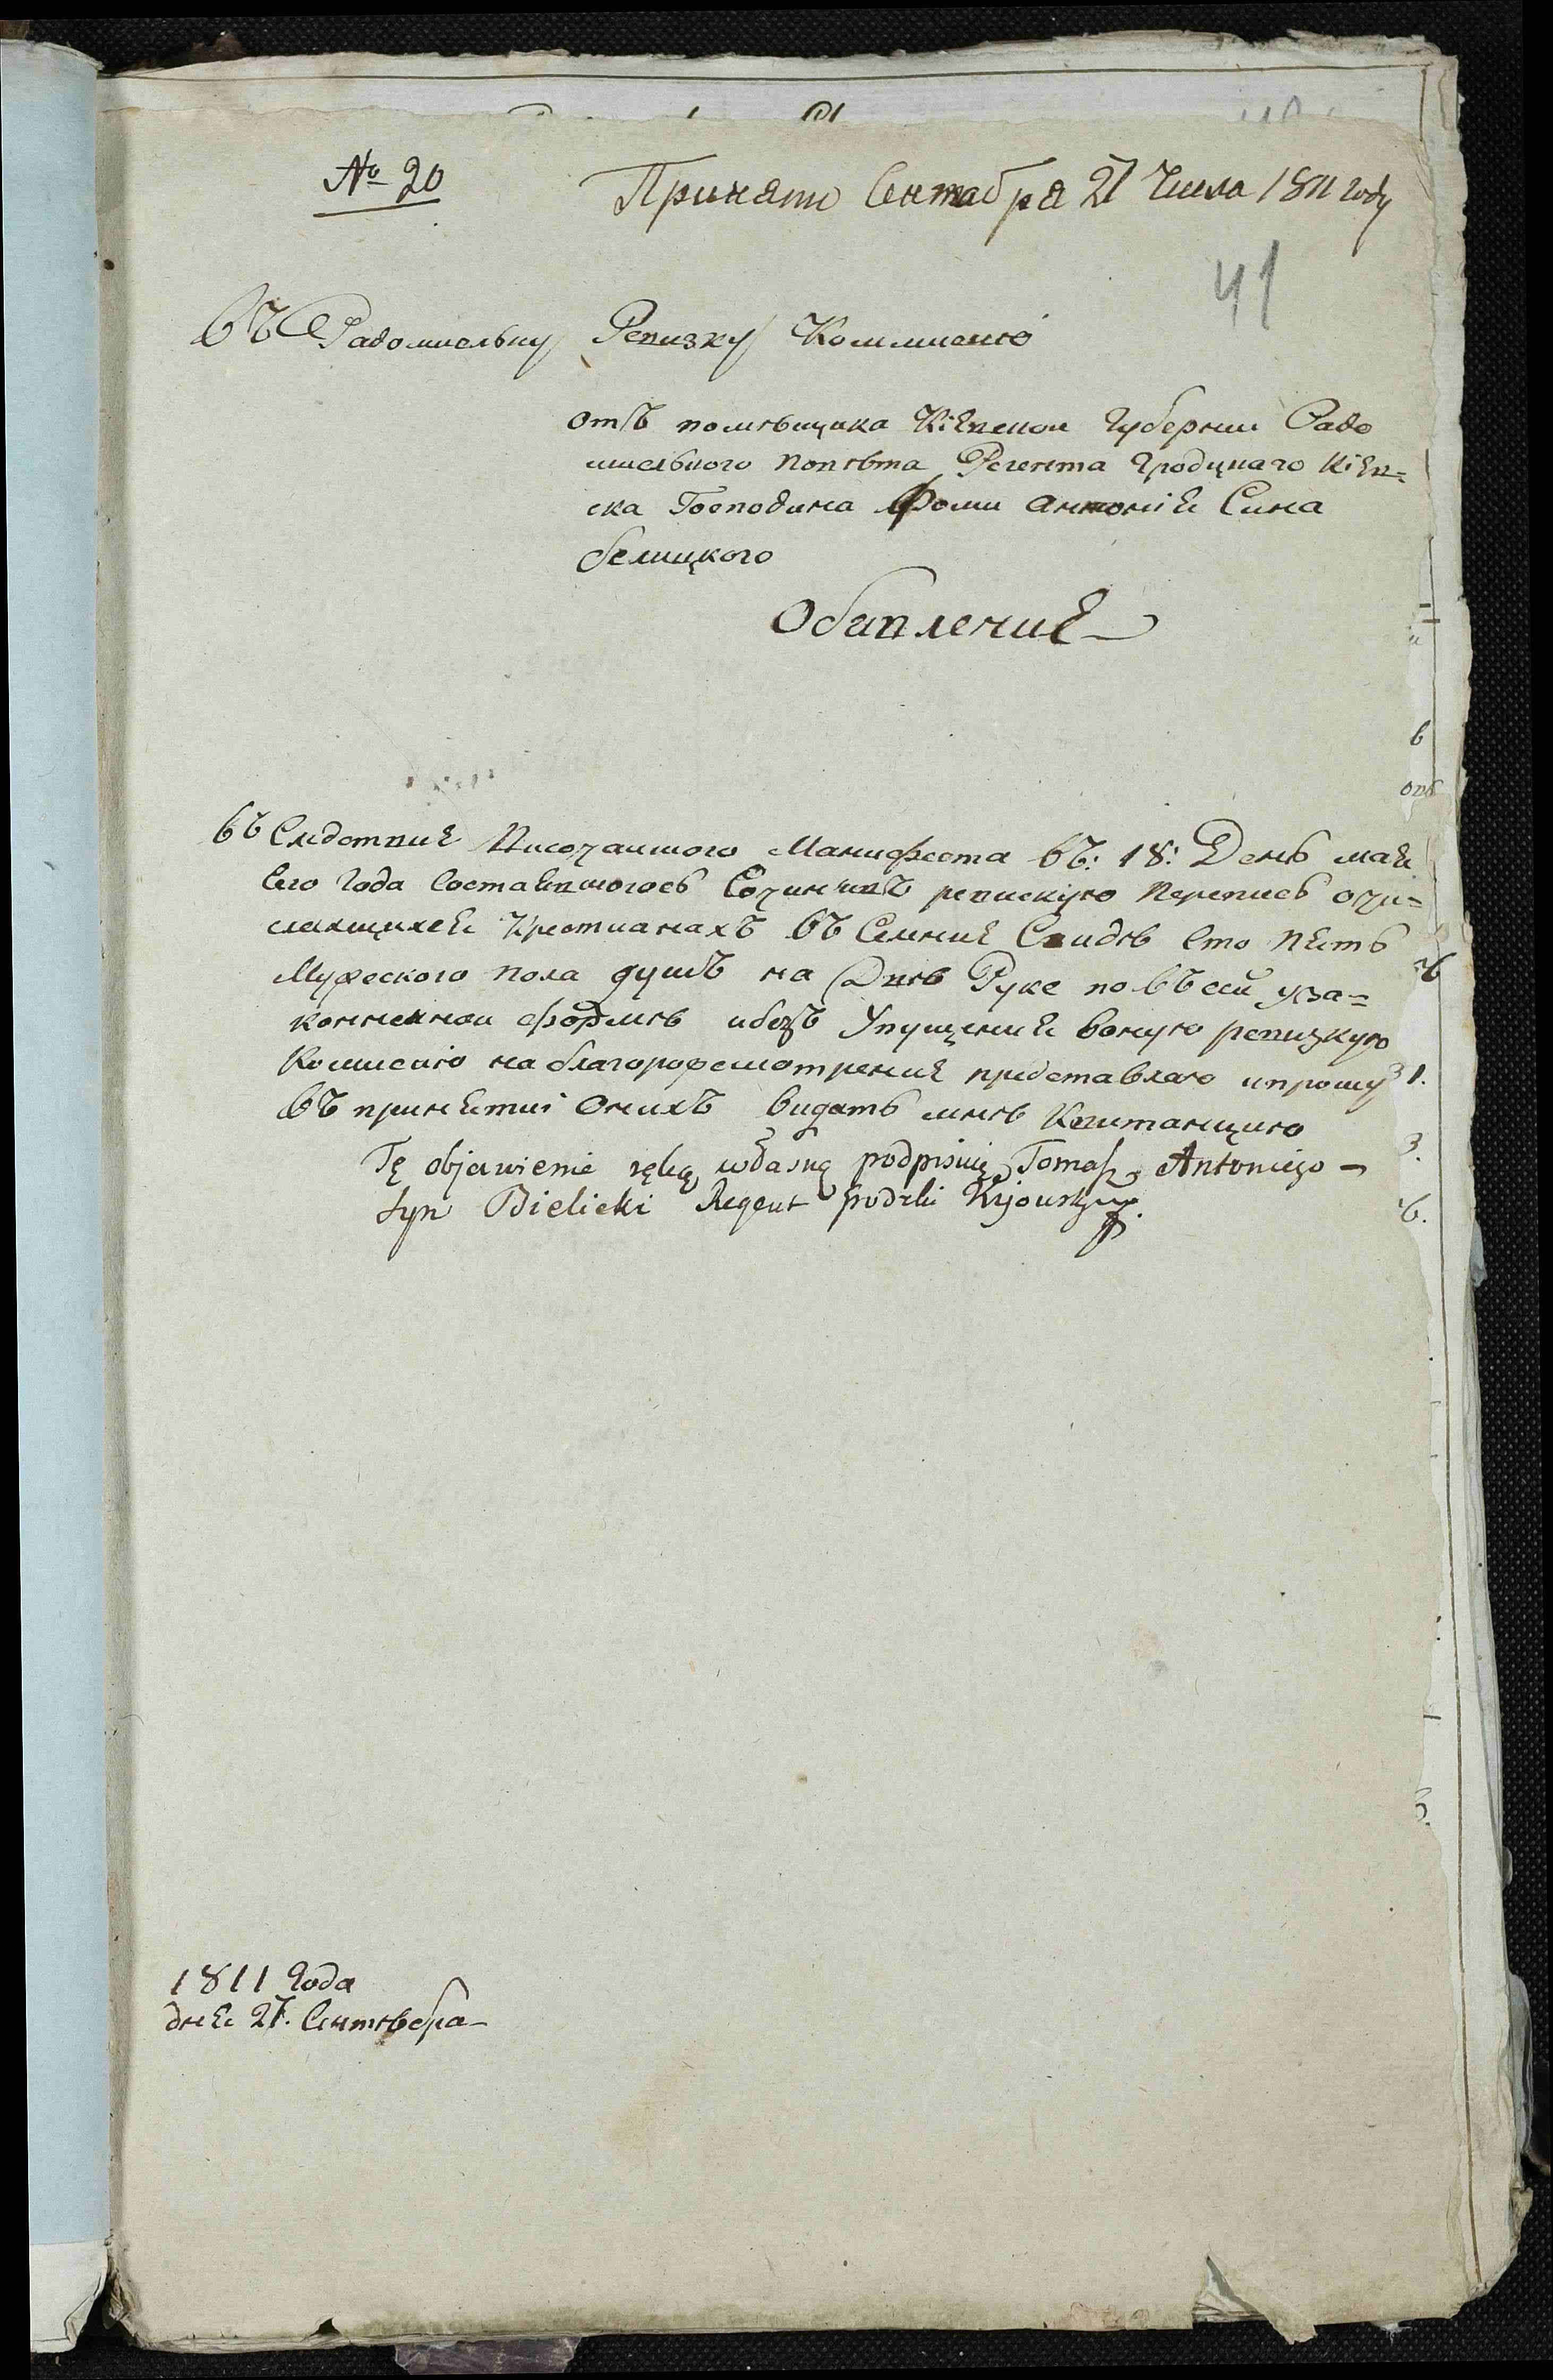 № 20
Принято Сентабря 27 Числа 1811 году
41
въ Радомиельну Ревизку Коммисию
отъ помѣщика Кіевской Губернии Радо
мисльного повѣта Регента Гродцкаго Кіев=
ска Господина Фоми Антонія Сина
белицкого
Обявление
въ Слѣдствие Височаишого Манифеста въ: 18: День мая
Сего Года Состаявшогось Сочинивъ ревискую Перепись о чи=
слящихся Крестианахъ въ Селение сто пять
Мужеского пола душъ на Двѣ Руке по въсей уза=
коненнои формѣ и безъ Упущения воную ревизкую
Комисию на благорозсмотрение представлаю и прошу
въ принятии Онихъ видать мнѣ Квитанцию
Tę objawienie ręką własną podpisuię Tomasz Antoniego
Syn Bielicki Regent Grodzki Kijowski
1811 Года
дня 27. Сентѣбра